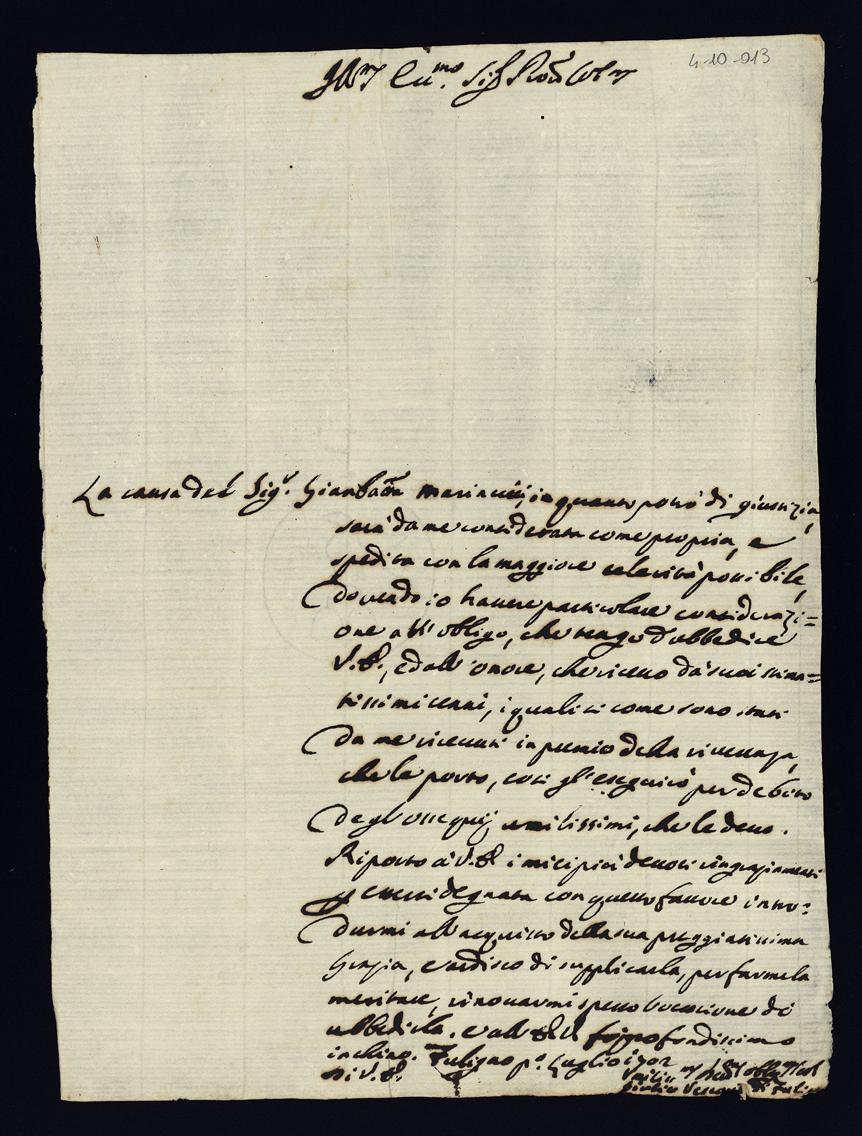 4-10-013
Ill.mo Sig.
La causa del Sig.r Gianbatta Marinucci, in quanto potrò di giustizia,
sarà da me considerata come propria, e
spedita con la maggiore celerità possibile,
dovendo io havere particolare considerazi=
one all'obligo, che tengo d'obbedire
V.S., ed all'onore, che ricevo da suoi stima=
tissimi cenni, i quali si come sono stati
da me ricevuti in premio della riverenza,
che le porto, così gl'eseguirò per debito
degl'ossequij umilissimi, che le devo.
Riporto à V.S. i miei più devoti ringraziamenti
essersi degnata con questo favore intro=
durmi all'acquisto della sua preggiatissima
grazia, e ardisco di supplicarla, per farmela
meritare, rinovarmi spesso l'occasione di
ubbedirla. e profondissimo
inchino. Fuligno p.o Luglio 1702
Di V.S.
Vescovo di Fuligno